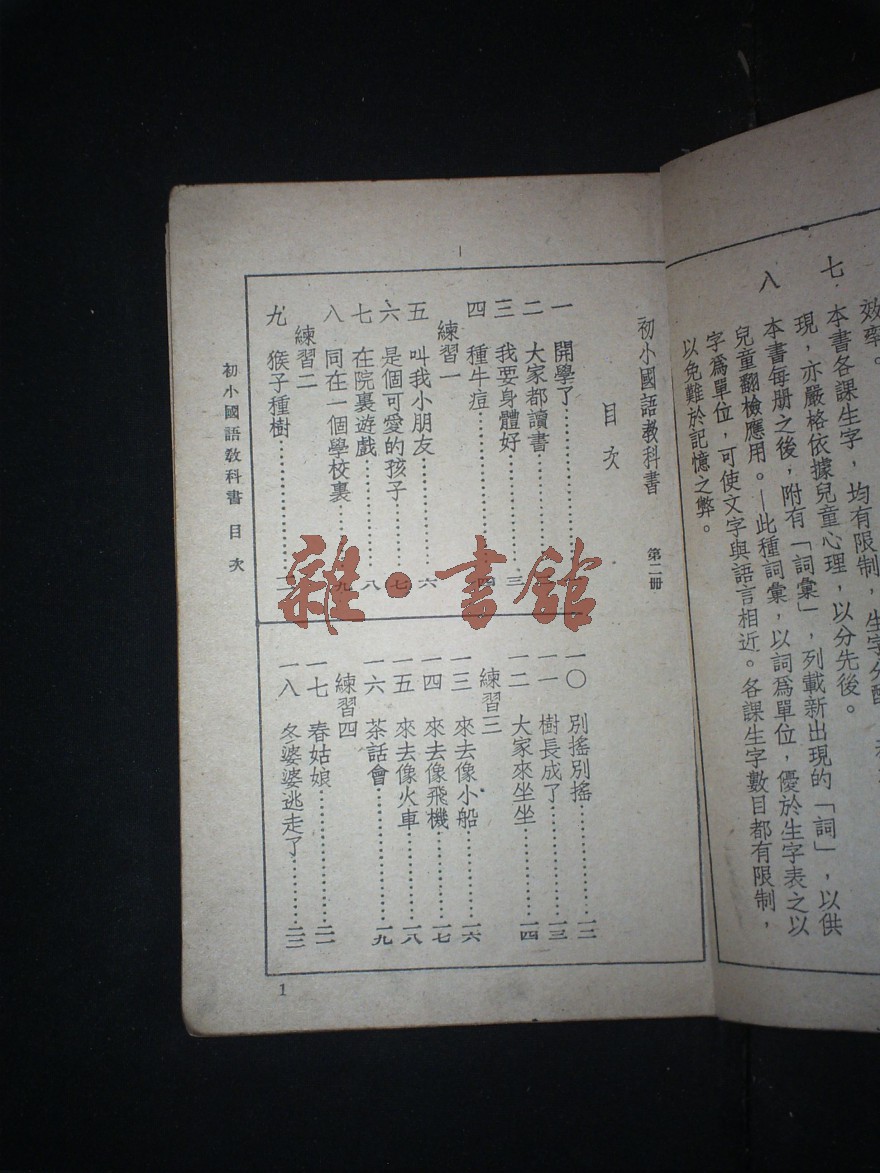 效率。
七 本書各課生字，均有限制，生字分配
現，亦嚴格依據兒童心理，以分先後。
八 本書每册之後，附有「詞彙」，列載新出現的「詞」，以供
兒童翻檢應用。—此種詞彙，以詞爲單位，優於生字表之以
字爲單位，可使文字與語言相近。各課生字數目都有限制，
以免難於記憶之弊。
初小國語教科書 第二冊
目次
一 開學了…………
二 大家都讀書…………
三 我要身體好…………三
四 種牛痘…………四
練習一
五 叫我小朋友…………六
六 是個可愛的孩子…………七
七 在院裏遊戲…………八
八 同在一個學校裏…………九
練習二
九 猴子種樹…………
一〇 別搖別搖…………一二
一一 樹長成了…………一三
一二 大家來坐坐…………一四
練習三
一三 來去像小船…………一六
一四 來去像飛機…………一七
一五 來去像火車…………一八
一六 茶話會…………一九
練習四
一七 春姑娘…………二一
一八 冬婆婆逃走了…………
初小國語教科書 目次
1
雜·書館